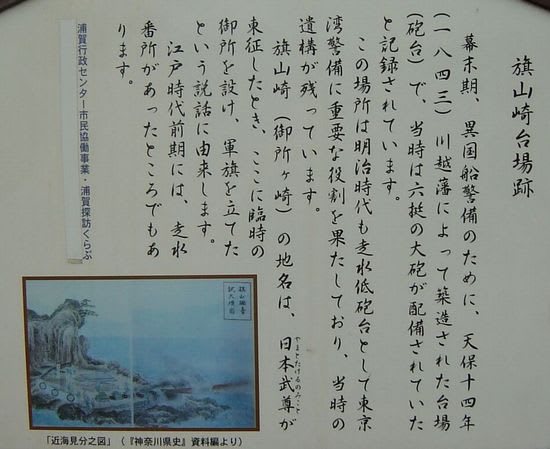 旗山崎台場跡
幕末期、異国船警備のために、天保十四年
(一八四三) 川越藩によって築造された台場
(砲台) で、当時は六挺の大砲が配備されていた
と記録されています。
この場所は明治時代も走水低砲台として東京
湾警備に重要な役割を果たしており、当時の
遺構が残っています。
旗山崎 (御所ヶ崎) の地名は、日本武尊が
やまとたけるのみこと
東征したとき、ここに臨時の
御所を設け、軍旗を立てた
という説話に由来します。
江戸時代前期には、走水
番所があったところでもあ
ります。
浦賀行政センター市民協働事業・浦賀探訪くらぶ
「近海見分之図」(『神奈川県史』資料編より)